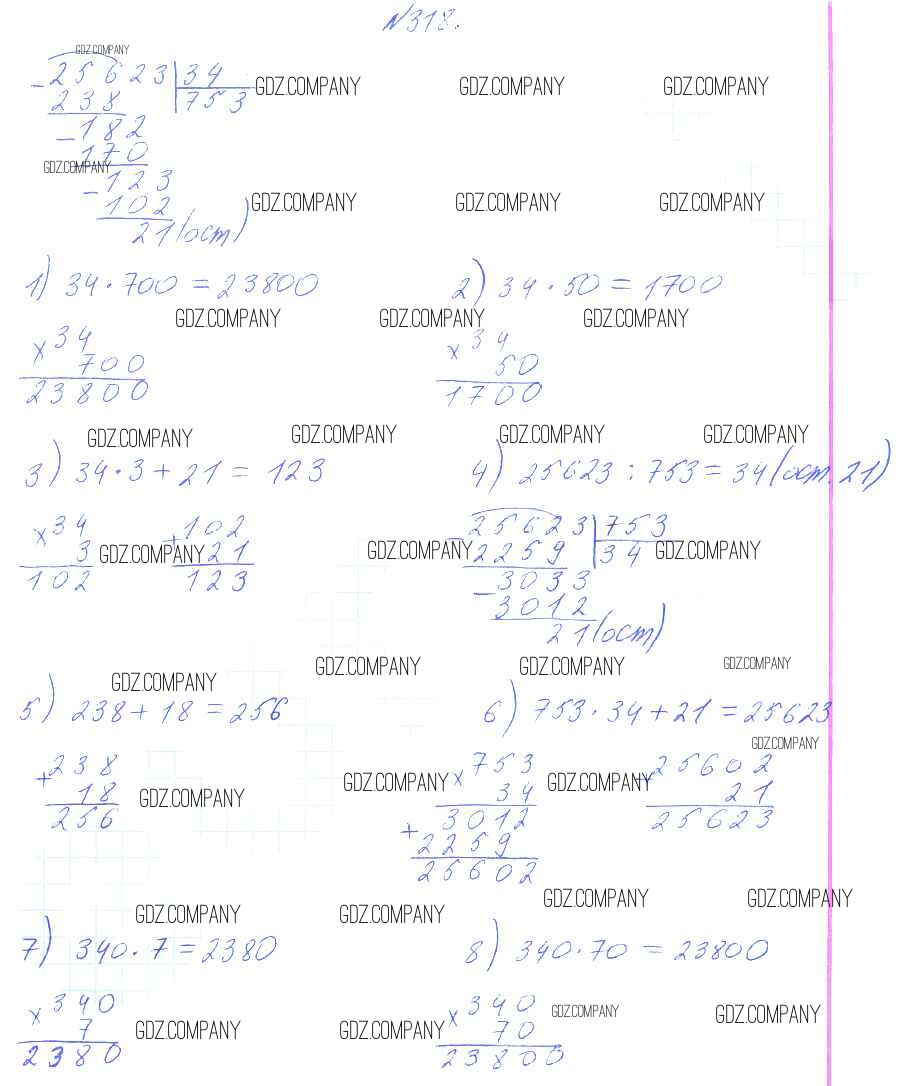 N318.
GDZ.COMPANY
- 25623 | 34
238 | 753 GDZ.COMPANY GDZ.COMPANY GDZ.COMPANY
- 182
170
GDZ.COMPANY
- 123
102 GDZ.COMPANY GDZ.COMPANY GDZ.COMPANY
21 (ост)
1) 34 · 700 = 23800 2) 34 · 50 = 1700
GDZ.COMPANY GDZ.COMPANY GDZ.COMPANY
× 34 × 34
700 50
23800 1700
GDZ.COMPANY GDZ.COMPANY GDZ.COMPANY GDZ.COMPANY
3) 34 · 3 + 21 = 123 4) 25623 : 753 = 34 (ост. 21)
× 34 + 102 - 25623 | 753
3 GDZ.COMPANY 21 GDZ.COMPANY 2259 | 34 GDZ.COMPANY
102 123 - 3033
3012
21 (ост)
GDZ.COMPANY GDZ.COMPANY GDZ.COMPANY GDZ.COMPANY
5) 238 + 18 = 256 6) 753 · 34 + 21 = 25623
GDZ.COMPANY
+ 238 × 753 + 25602
18 GDZ.COMPANY GDZ.COMPANY 34 GDZ.COMPANY 21
256 3012 25623
+ 2259
25602
GDZ.COMPANY GDZ.COMPANY GDZ.COMPANY GDZ.COMPANY
7) 340 · 7 = 2380 8) 340 · 70 = 23800
× 340 × 340 GDZ.COMPANY
7 GDZ.COMPANY GDZ.COMPANY 70 GDZ.COMPANY
2380 23800